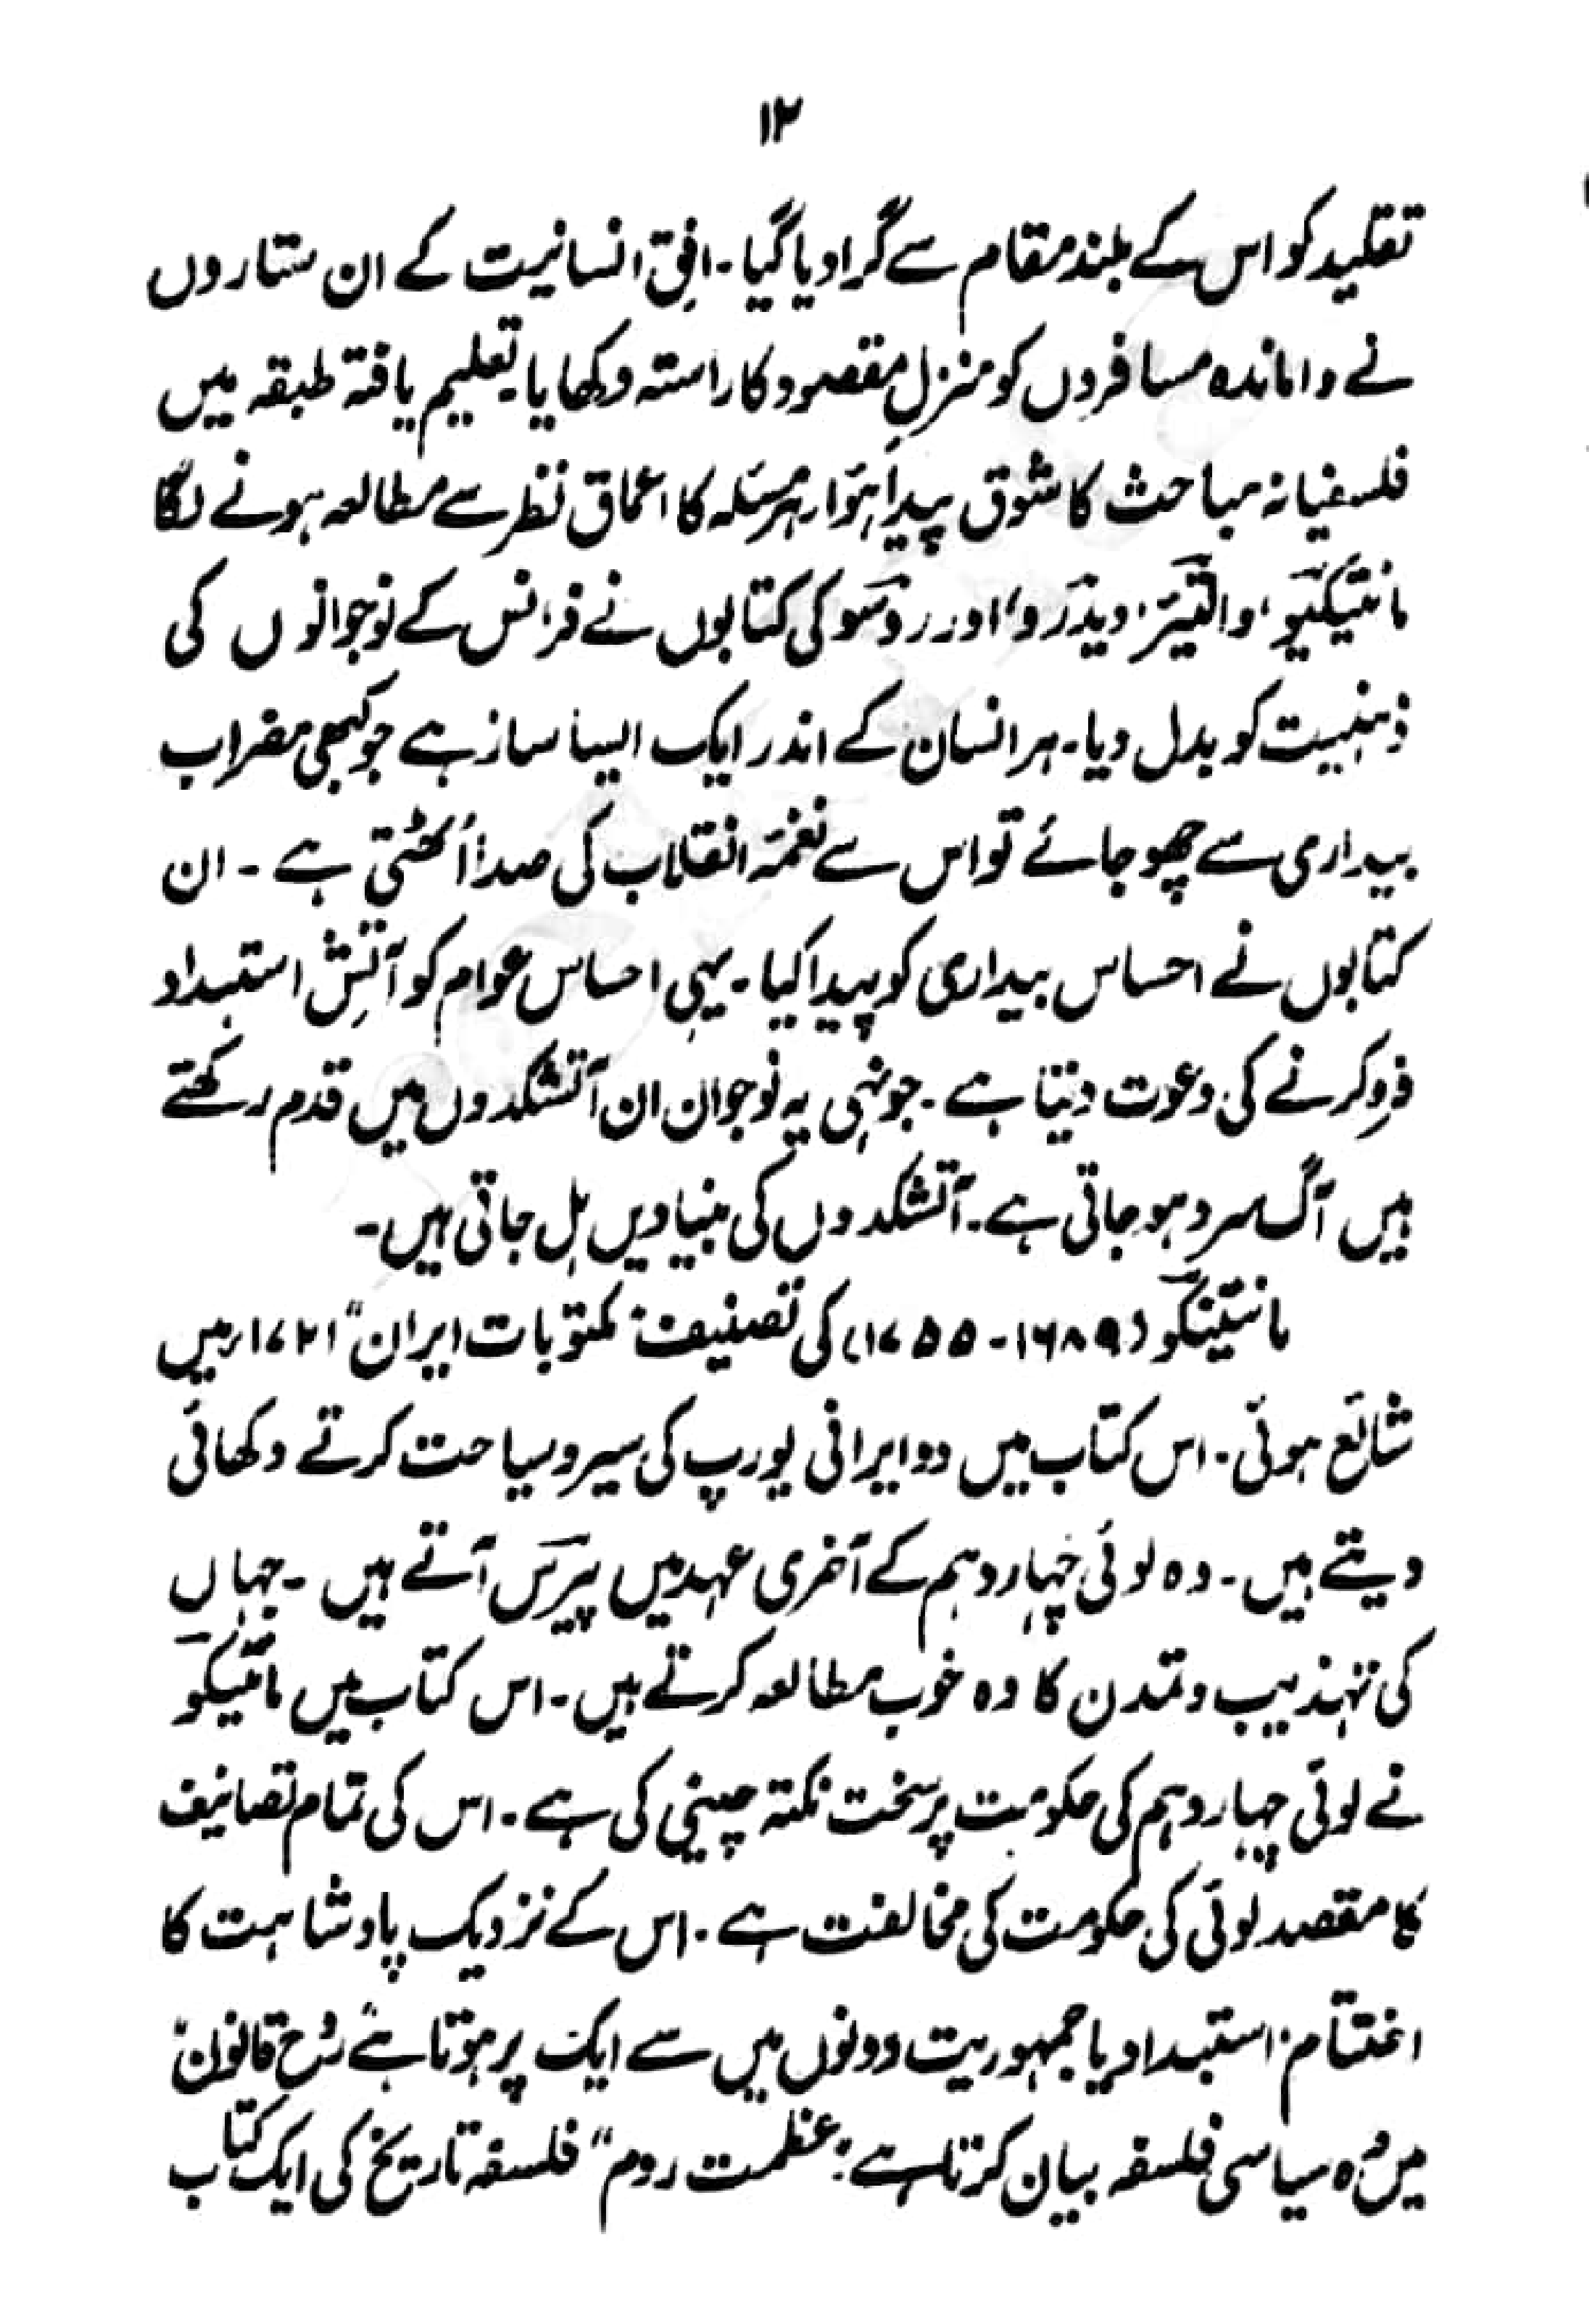 ۱۲
تقلید کو اس کے بلند مقام سے گرا دیا گیا ۔ افقِ انسانیت کے ان ستاروں
نے واماندہ مسافروں کو منزلِ مقصود کا راستہ دکھایا۔ تعلیم یافتہ طبقہ میں
فلسفیانہ مباحث کا شوق پیدا ہوا۔ ہر مسئلہ کا اعماق نظر سے مطالعہ ہونے لگا
مانٹیکیو، والتیئر، دیدرو، اور روسو کی کتابوں نے فرانس کے نوجوانوں کی
ذہنیت کو بدل دیا۔ ہر انسان کے اندر ایک ایسا ساز ہے جو کبھی مضراب
بیداری سے چھو جائے تو اس سے نغمۂ انقلاب کی صدا اُٹھتی ہے ۔ ان
کتابوں نے احساس بیداری کو پیدا کیا ۔ یہی احساس عوام کو آتشِ استبداد
فرو کرنے کی دعوت دیتا ہے ۔ جونہی یہ نوجوان ان آتشکدوں میں قدم رکھتے
ہیں آگ سرد ہو جاتی ہے ۔ آتشکدوں کی بنیادیں ہل جاتی ہیں ۔
مانٹینکو (۱۶۸۹ - ۱۷۵۵) کی تصنیف "مکتوبات ایران" ۱۷۲۱ء میں
شائع ہوئی ۔ اس کتاب میں دو ایرانی یورپ کی سیر و سیاحت کرتے دکھائی
دیتے ہیں ۔ وہ لوئی چہار دہم کے آخری عہد میں پیرس آتے ہیں ۔ جہاں
کی تہذیب و تمدن کا وہ خوب مطالعہ کرتے ہیں ۔ اس کتاب میں مانٹیکو
نے لوئی چہار دہم کی حکومت پر سخت نکتہ چینی کی ہے ۔ اس کی تمام تصانیف
کا مقصد لوئی کی حکومت کی مخالفت ہے ۔ اس کے نزدیک پادشاہت کا
اختتام، استبداد یا جمہوریت دونوں میں سے ایک پر ہوتا ہے "روح قانون"
میں وہ سیاسی فلسفہ بیان کرتا ہے "عظمت روم" فلسفہ تاریخ کی ایک کتاب